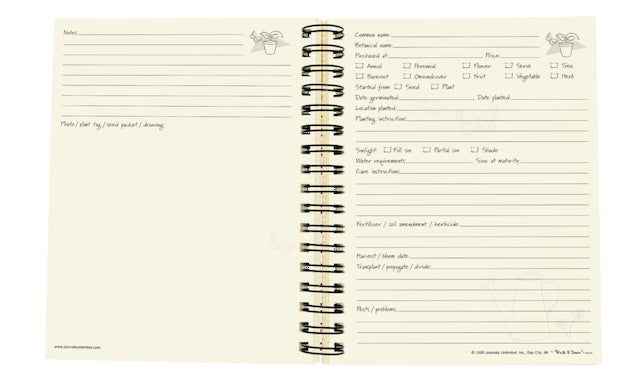 Notes:
Photo / plant tag / seed packet / drawing:
www.journalsunlimited.com
Common name:
Botanical name:
Purchased at: Price:
Annual Perennial Flower Shrub Tree
Bareroot Groundcover Fruit Vegetable Herb
Started from: Seed Plant
Date germinated: Date planted:
Location planted:
Planting instructions:
Sunlight: Full sun Partial sun Shade
Water requirements: Size at maturity:
Care instructions:
Fertilizer / soil amendment / herbicide:
Harvest / bloom date:
Transplant / propagate / divide:
Pests / problems:
© 1998 Journals Unlimited, Inc., Bay City, MI "Write it Down"